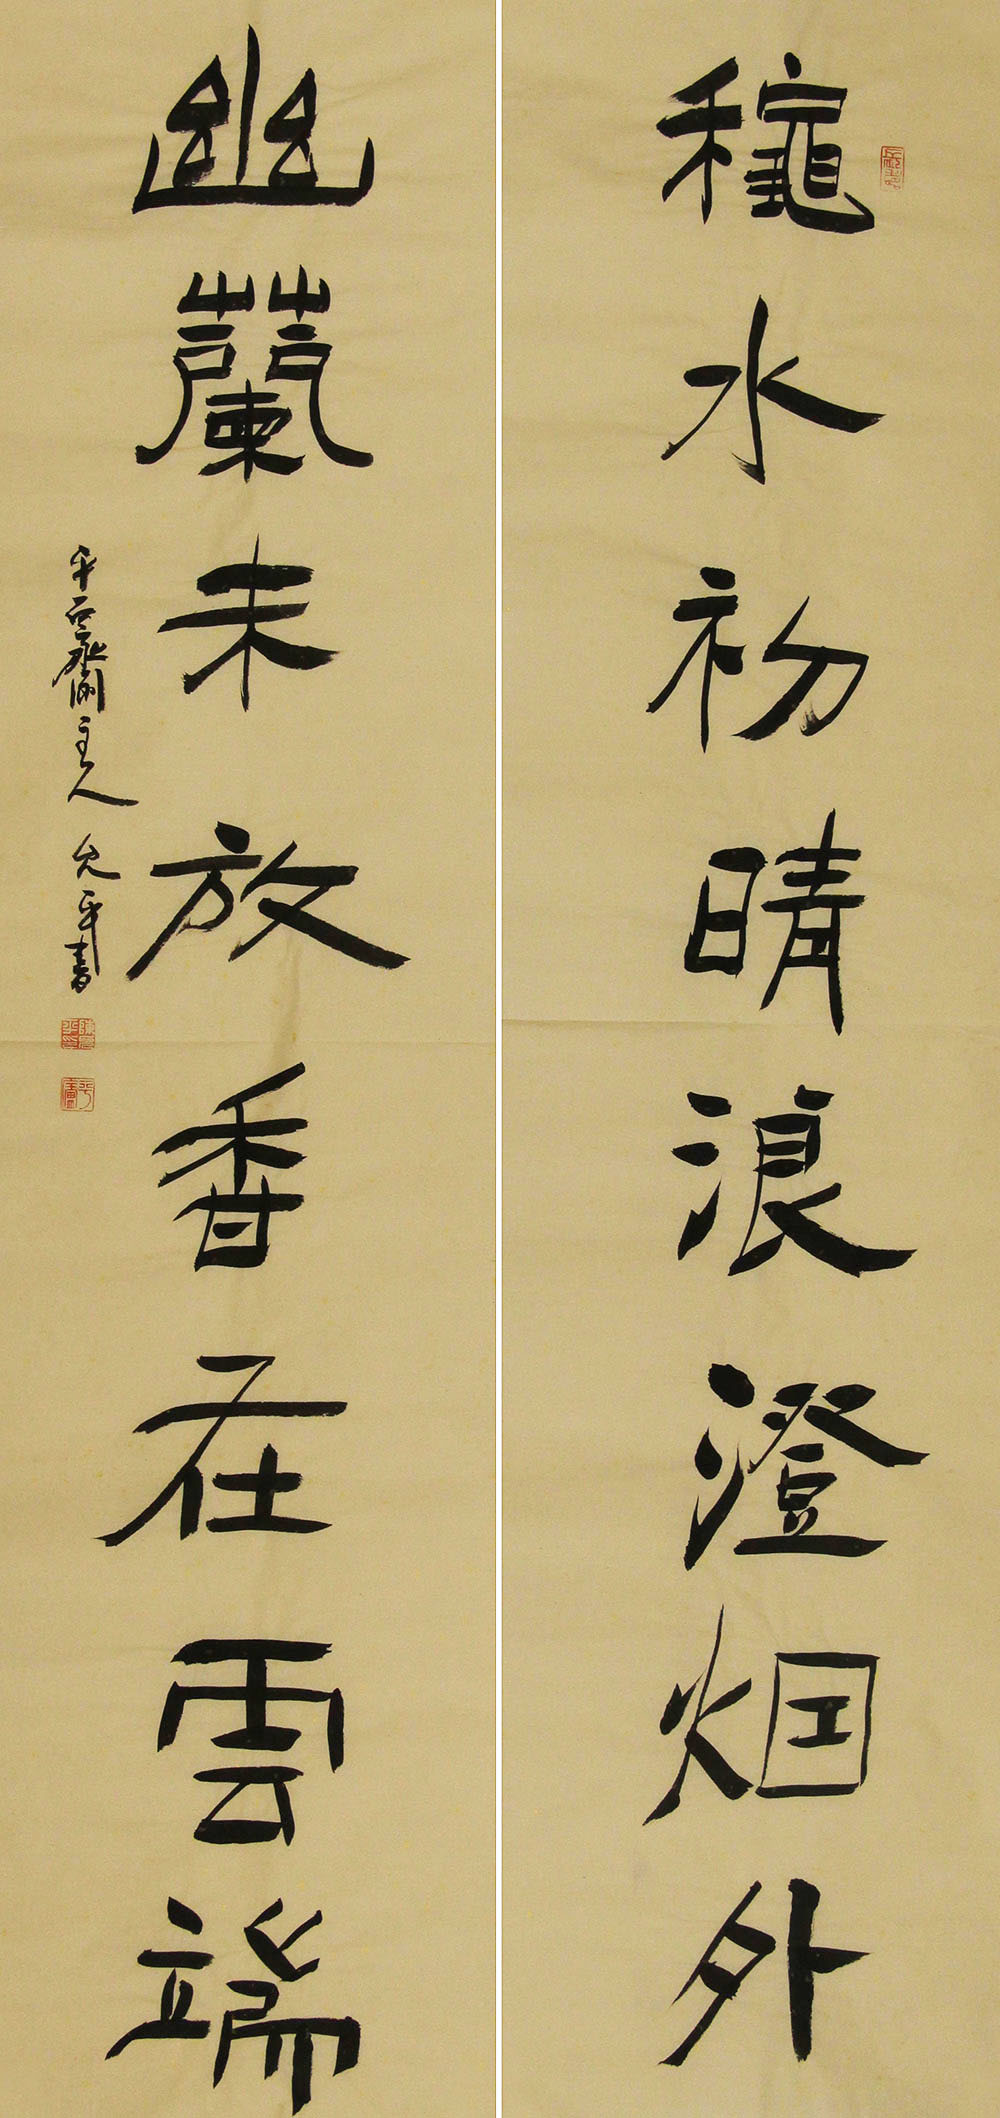 秋水初晴浪澄烟外
幽蘭未放香在雲端
平盦齋閣主人 允平書